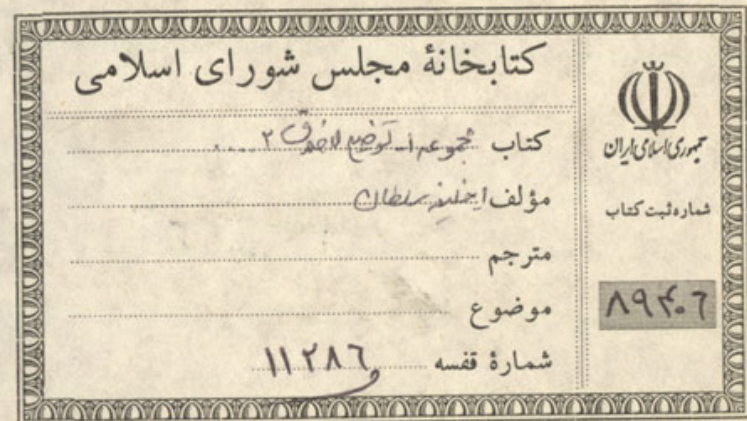 کتابخانهٔ مجلس شورای اسلامی
کتاب مجموعه ۱ـ توضیح الاخلاق ۲ ....
مؤلف ۱ـ خلیفه سلطان
مترجم
موضوع
شمارهٔ قفسه ۱۱۲۸۶
جمهوری اسلامی ایران
شماره ثبت کتاب
۸۹۴۰۶